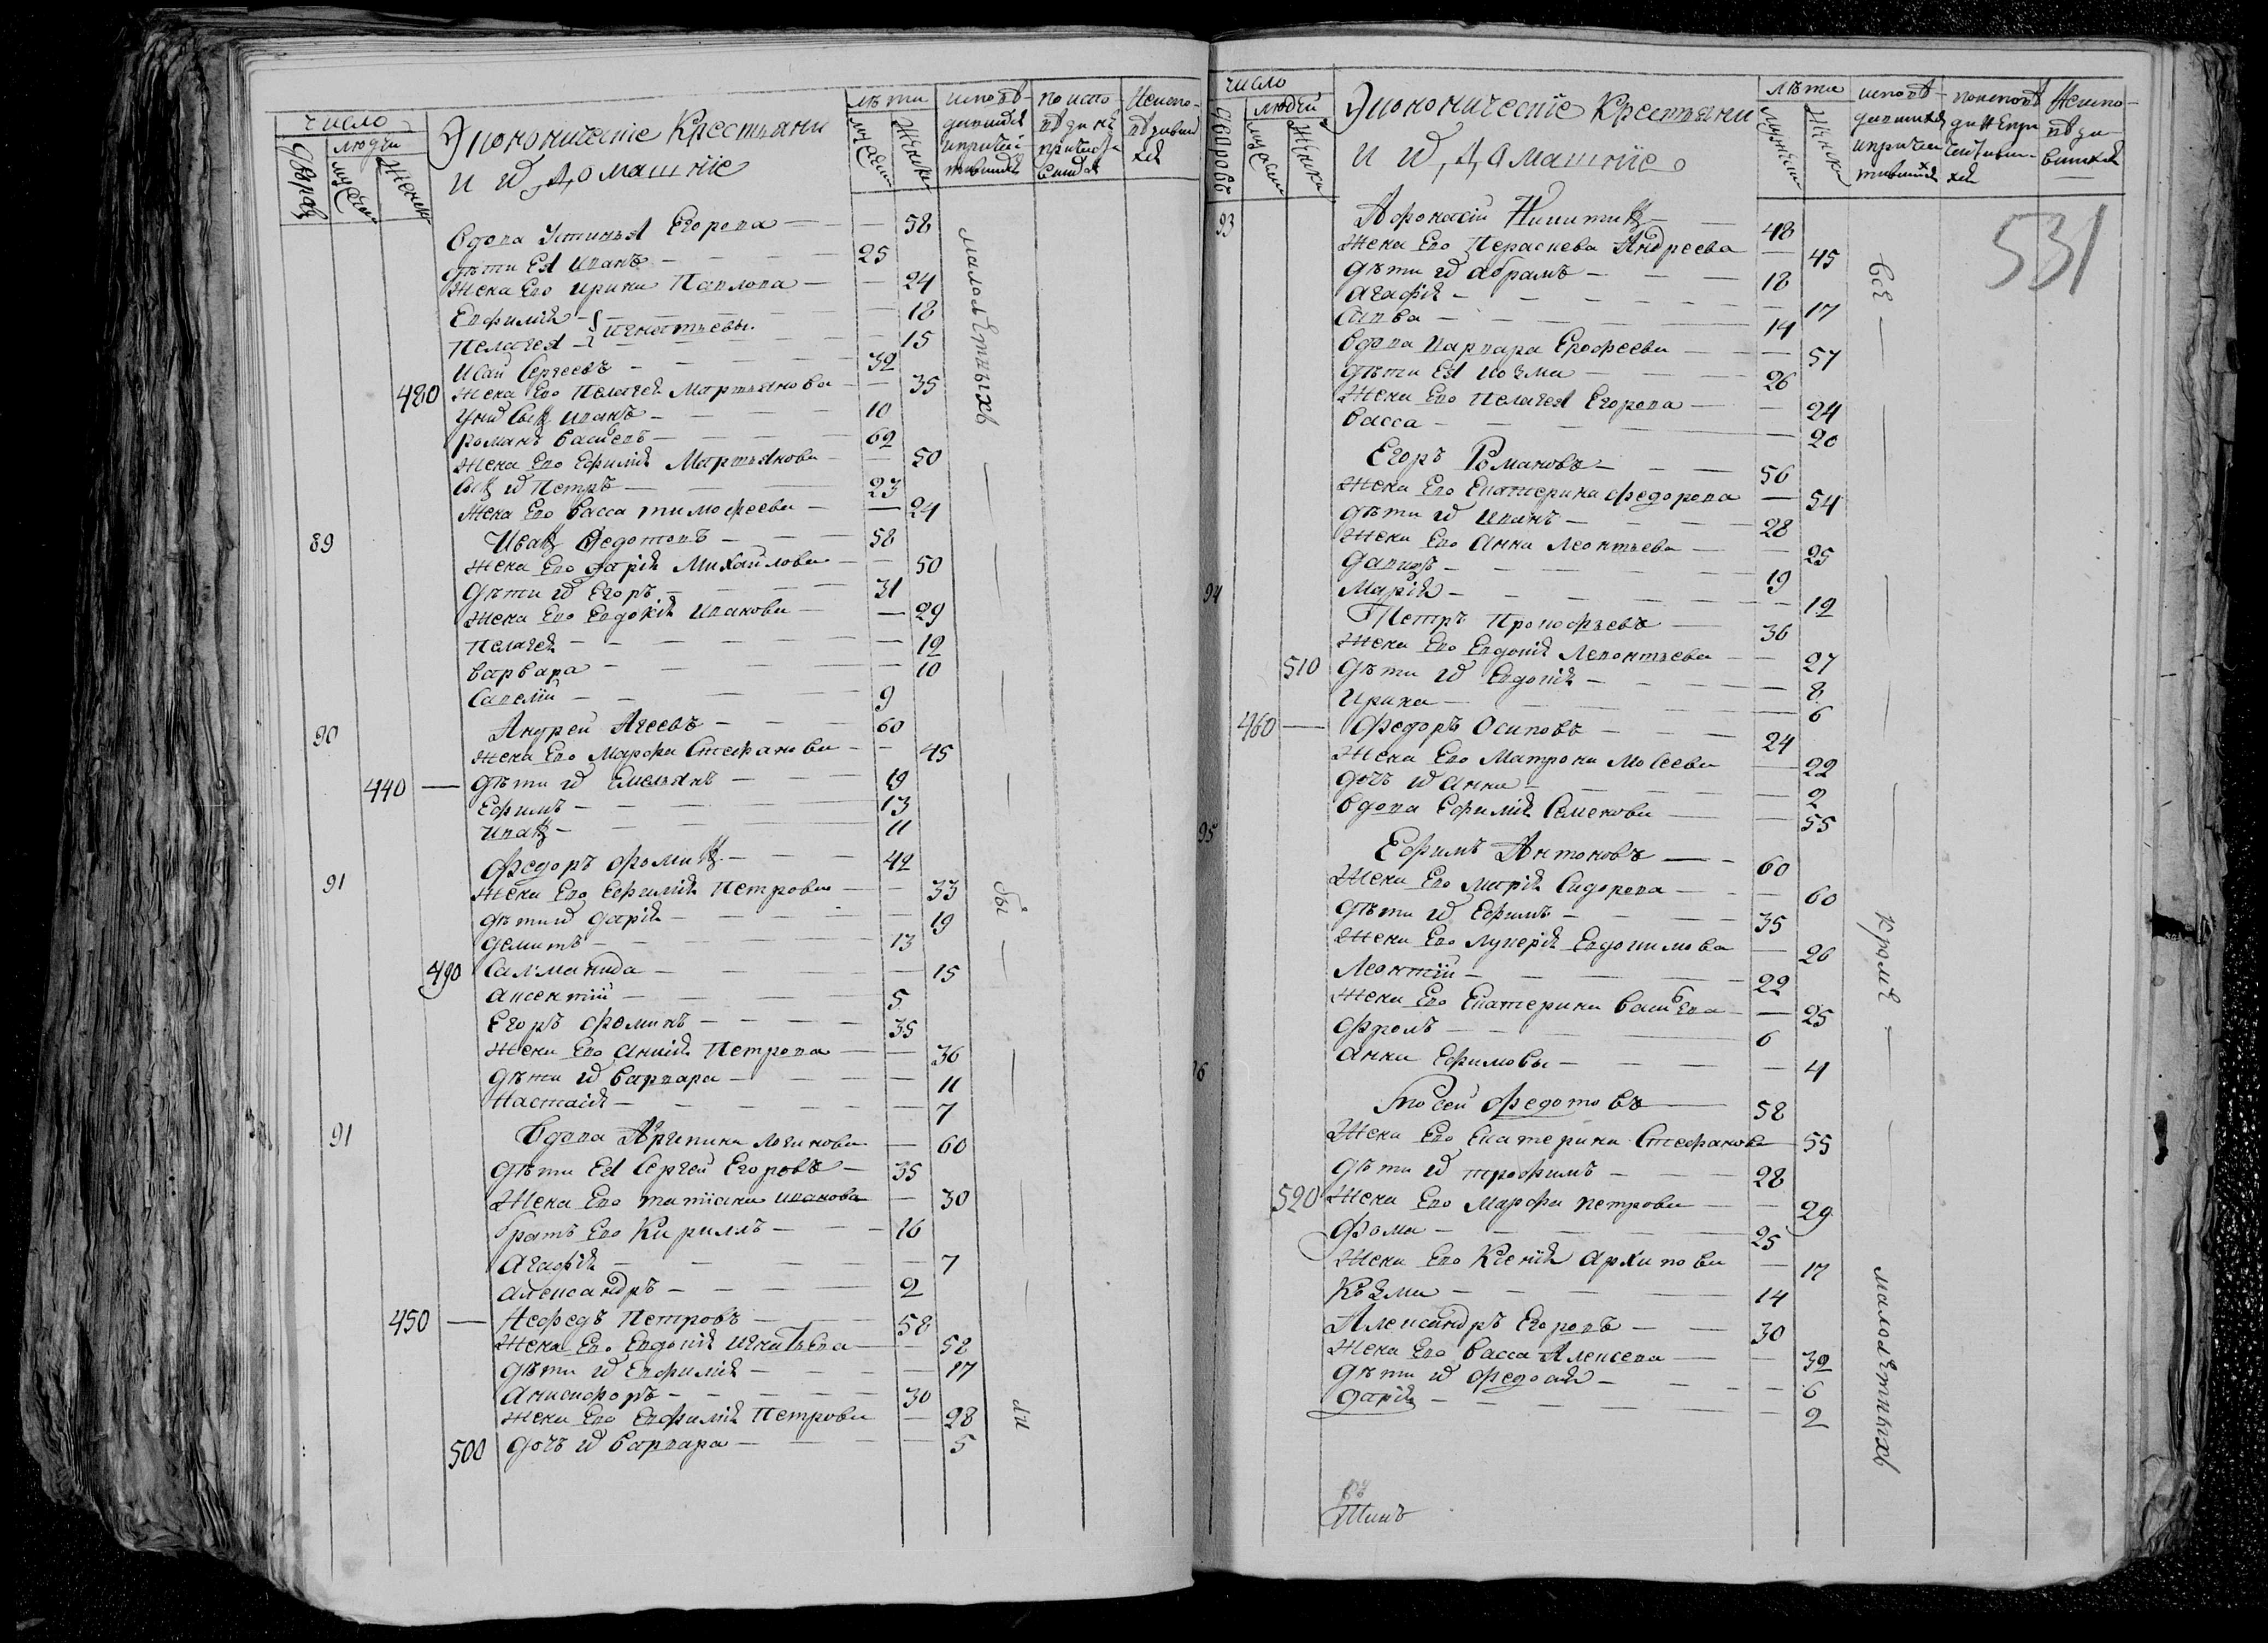 число
дворовъ
людей
мужеск
женск
Экономическіе Крестьяни
и ихъ домашніе
лѣта
мужеск
женск
исповѣ-
давшихся
и причаст-
тившихся
по испо
вѣди не
причасти-
вшихся
Неиспо-
вѣдавш
хся
Вдова Устинья Егорова — — 58
дѣти Ея Иванъ — 25
Жена Его Ирина Павлова — — 24
Евфимія — 18
Игнатьевы
Пелагея — 15
Исай Сергеевъ — 32
480 Жена Его Пелагея Мартьянова — — 35
У них Сынъ Иванъ — 10
Романъ Васильевъ — 62
Жена Его Ефимія Мартьянова — 50
Сынъ их Петръ — 23
Жена Его Васса Тимофеева — — 24
89 Иванъ Федотовъ — 58
Жена Его Дарія Михайлова — — 50
Дѣти их Егоръ — 31
Жена Его Евдокія Иванова — — 29
Пелагея — — 12
Варвара — — 10
Савелій — 9
90 Андрей Агеевъ — 60
Жена Его Марфа Стефанова — — 45
440 — Дѣти их Емельянъ — 19
Ефимъ — 13
Иванъ — 11
91 Федоръ Фоминъ — 42
Жена Его Ефимія Петрова — — 33
Дѣти их Дарія — — 19
Демитъ — 13
490 Саламанида — — 15
Аксентій — 5
Егоръ Фоминъ — 35
Жена Его Анисія Петрова — — 36
Дѣти их Варвара — — 11
Настасія — — 7
91 Вдова Агрипина Логинова — 60
Дѣти Ея Сергей Егоровъ — 35
Жена Его Татіана Иванова — 30
Братъ Его Кириллъ — 16
Агафія — — 7
Александръ — 2
450 — Нефедъ Петровъ — 58
Жена Его Евдокія Игнатьева — — 52
Дѣти их Евфимія — — 17
Анисифоръ — 30
Жена Его Евфимія Петрова — 28
500 Дочь их Варвара — — 5
малолѣтныхъ — бы — ли
число
дворовъ
людей
мужеск
женска
Экономическіе Крестьяни
и ихъ домашніе
лѣта
мужеск
женска
исповѣ-
давшихся
и причас
тившихся
по исповѣ
ди не при
частивши-
хся
Неиспо-
вѣда-
вшихся
531
93 Афонасій Никитинъ — 48
Жена Его Пераскева Андреева — 45
Дѣти их Абрамъ — 18
Агафія — — 17
Савва — 14
Вдова Варвара Ерофеева — — 57
Дѣти Ея Козма — 26
Жена Его Пелагея Егорова — — 24
Васса — — 20
Егоръ Романовъ — 56
Жена Его Екатерина Федорова — 54
Дѣти их Иванъ — 28
Жена Его Анна Леонтьева — — 25
Данилъ — 19
Марія — — 12
94 Петръ Прокофьевъ — 36
Жена Его Евдокія Левонтьева — — 27
510 Дѣти их Евдокія — — 8
Ирина — — 6
460 — Федоръ Осиповъ — 24
Жена Его Матрона Мосеева — 22
Дочь их Анна — — 2
Вдова Ефимія Семенова — — 55
95 Ефимъ Антоновъ — 60
Жена Его Марія Сидорова — — 60
Дѣти их Ефимъ — 35
Жена Его Лукерія Евдокимова — 26
Леонтій — 22
Жена Его Екатерина Васильева — 25
Фролъ — 6
Анна Ефимовы — — 4
96 Мосей Федотовъ — 58
Жена Его Екатерина Стефанова — 55
Дѣти их Трофимъ — 28
520 Жена Его Марфа Петрова — — 29
Фома — 25
Жена Его Ксенія Архипова — 17
Козма — 14
Александръ Егоровъ — 30
Жена Его Васса Алексева — — 32
Дѣти их Федосия — — 6
Дарія — — 2
всѣ — кромѣ — малолѣтныхъ